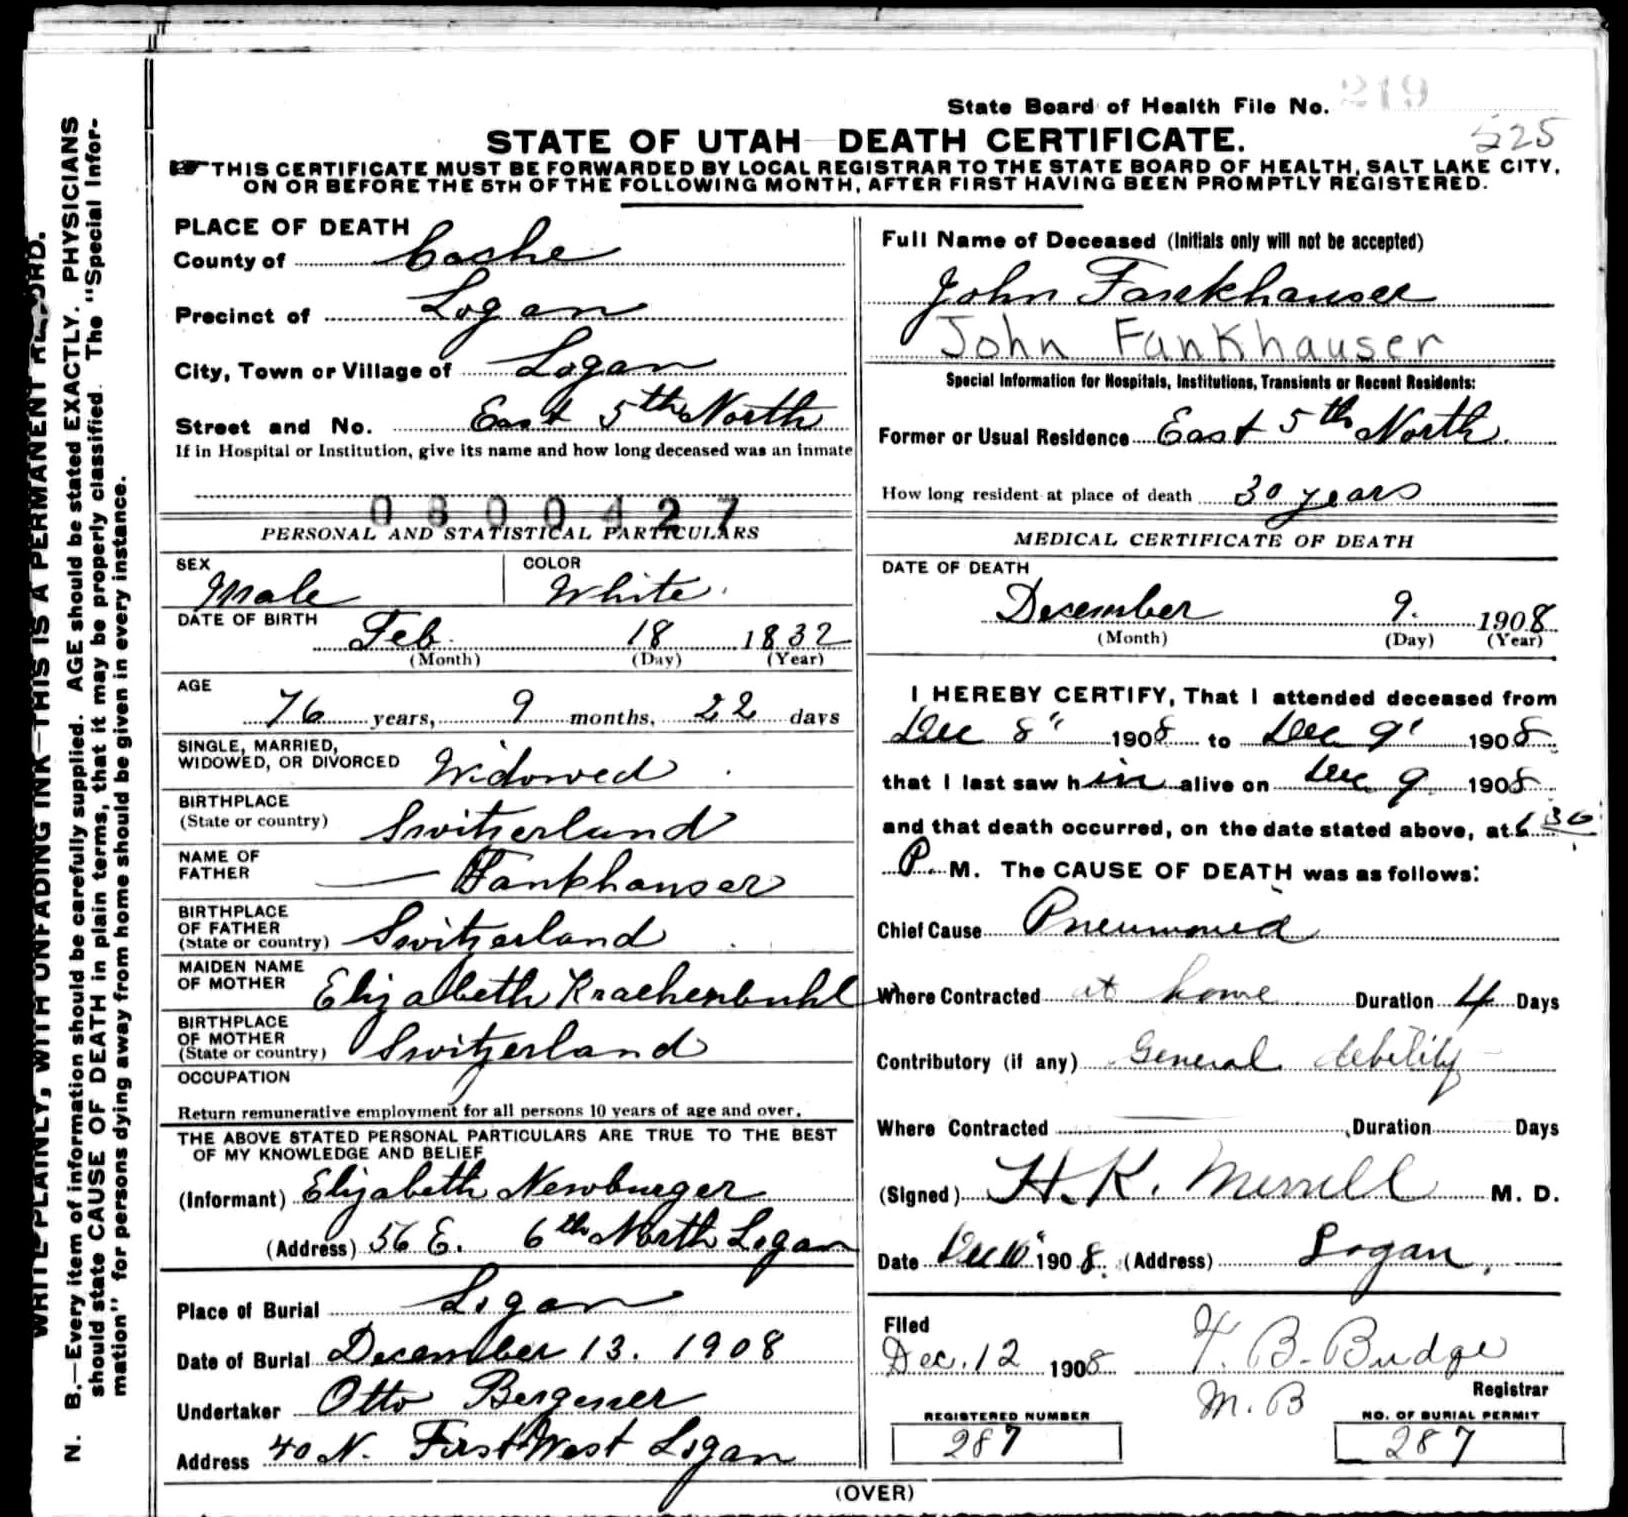 State Board of Health File No. 219
525
STATE OF UTAH—DEATH CERTIFICATE.
THIS CERTIFICATE MUST BE FORWARDED BY LOCAL REGISTRAR TO THE STATE BOARD OF HEALTH, SALT LAKE CITY,
ON OR BEFORE THE 5TH OF THE FOLLOWING MONTH, AFTER FIRST HAVING BEEN PROMPTLY REGISTERED.
WRITE PLAINLY, WITH UNFADING INK—THIS IS A PERMANENT RECORD.
N. B.—Every item of information should be carefully supplied. AGE should be stated EXACTLY. PHYSICIANS
should state CAUSE OF DEATH in plain terms, that it may be properly classified. The "Special Infor-
mation" for persons dying away from home should be given in every instance.
PLACE OF DEATH
County of Cache
Precinct of Logan
City, Town or Village of Logan
Street and No. East 5th North
If in Hospital or Institution, give its name and how long deceased was an inmate
0800427
PERSONAL AND STATISTICAL PARTICULARS
SEX
Male
COLOR
White.
DATE OF BIRTH
Feb. 18 1832
(Month) (Day) (Year)
AGE
76 years, 9 months, 22 days
SINGLE, MARRIED,
WIDOWED, OR DIVORCED Widowed
BIRTHPLACE
(State or country) Switzerland
NAME OF
FATHER — Fankhauser
BIRTHPLACE
OF FATHER
(State or country) Switzerland
MAIDEN NAME
OF MOTHER Elizabeth Krachenbuhl
BIRTHPLACE
OF MOTHER
(State or country) Switzerland
OCCUPATION
Return remunerative employment for all persons 10 years of age and over.
THE ABOVE STATED PERSONAL PARTICULARS ARE TRUE TO THE BEST
OF MY KNOWLEDGE AND BELIEF
(Informant) Elizabeth Newburger
(Address) 56 E. 6th North Logan
Place of Burial Logan
Date of Burial December 13. 1908
Undertaker Otto Bergener
Address 40 N. First West Logan
Full Name of Deceased (Initials only will not be accepted)
John Fankhauser
John Fankhauser
Special Information for Hospitals, Institutions, Transients or Recent Residents:
Former or Usual Residence East 5th North.
How long resident at place of death 30 years
MEDICAL CERTIFICATE OF DEATH
DATE OF DEATH
December 9. 1908
(Month) (Day) (Year)
I HEREBY CERTIFY, That I attended deceased from
Dec 8" 1908 to Dec 9' 1908
that I last saw him alive on Dec 9 1908
and that death occurred, on the date stated above, at 6 30
P. M. The CAUSE OF DEATH was as follows:
Chief Cause Pneumonia
Where Contracted at home Duration 4 Days
Contributory (if any) General debility
Where Contracted Duration Days
(Signed) H. K. Merrill M. D.
Date Dec 10" 1908. (Address) Logan.
Filed
Dec. 12 1908 F. B. Budge
Registrar
M. B
REGISTERED NUMBER
287
NO. OF BURIAL PERMIT
287
(OVER)